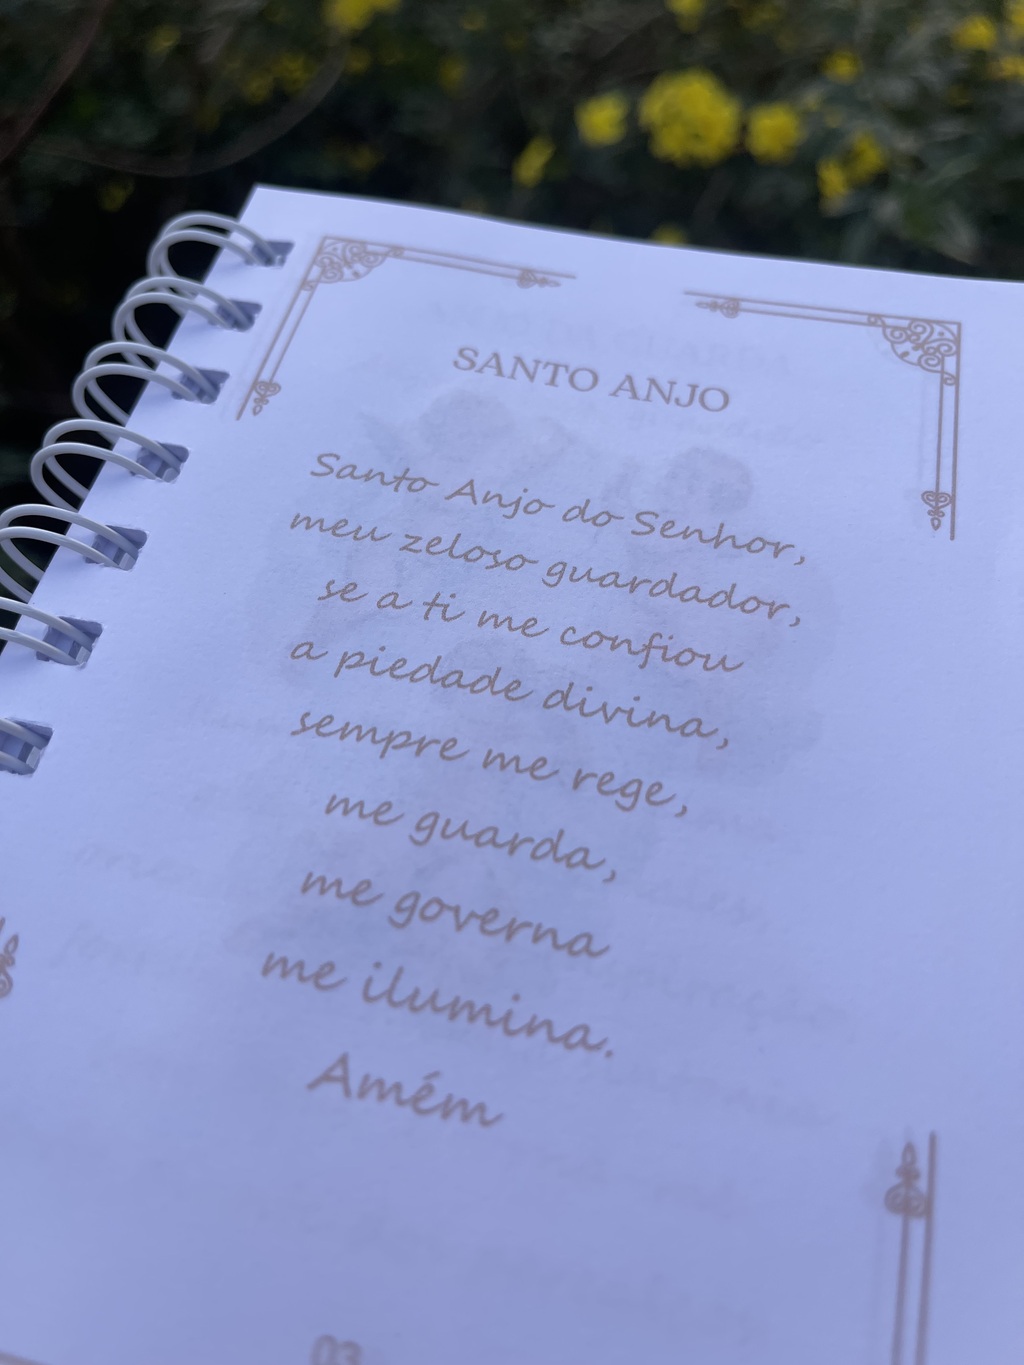 SANTO ANJO
Santo Anjo do Senhor,
meu zeloso guardador,
se a ti me confiou
a piedade divina,
sempre me rege,
me guarda,
me governa
me ilumina.
Amém
03